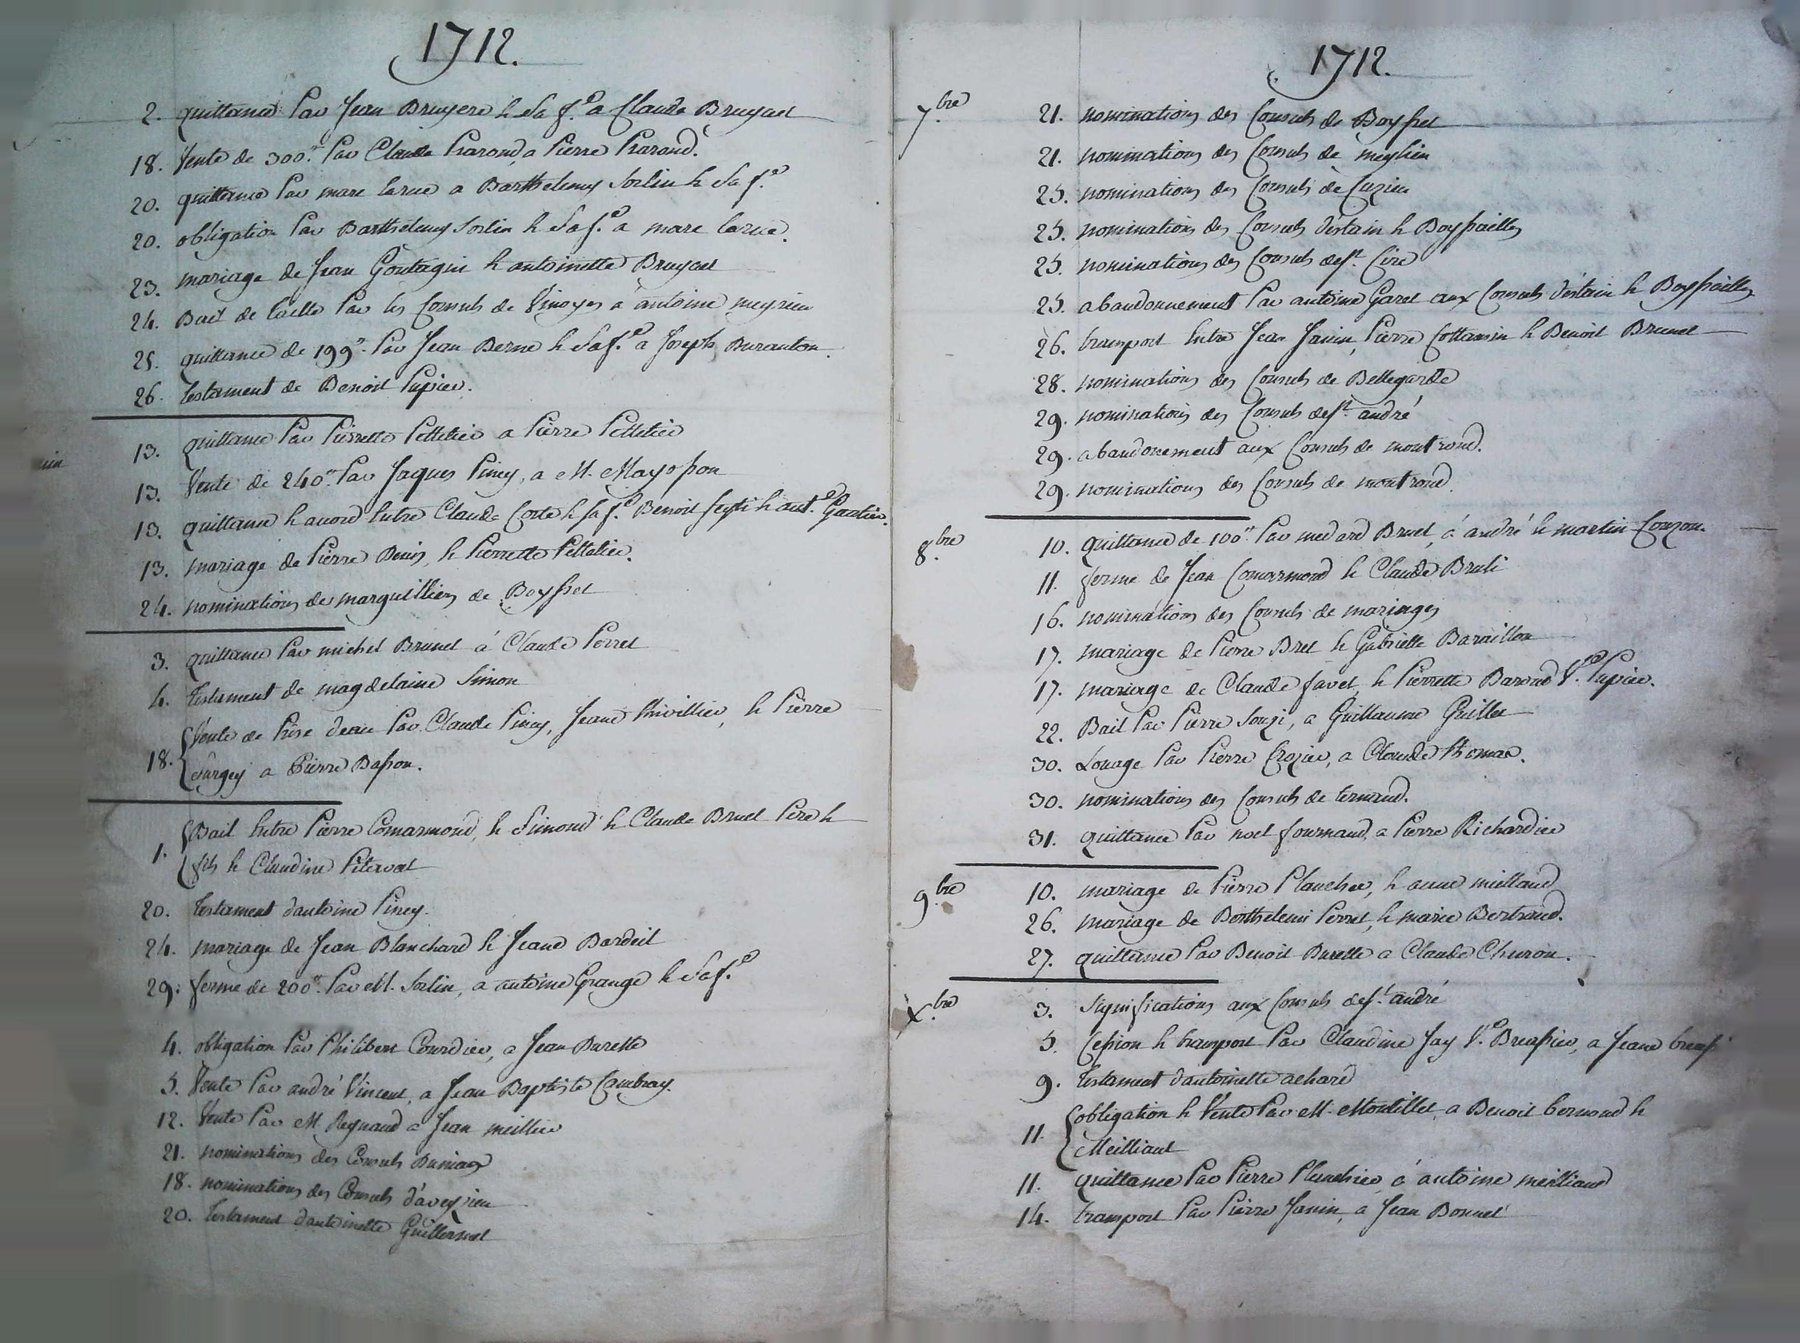 1712.
2. quittance Par Jean Bruyere & Sa f.e a Claude Bruyas
18. Vente de 300.tt Par Claude Prarond, a Pierre Prarond.
20. quittance Par marc larue a Barthelemy Sorlin & Sa f.e
20. obligation Par Barthelemy Sorlin & Sa f.e a marc larue.
23. mariage de Jean Goutagni & antoinette Bruyas
24. Bail de taille Par les Consuls de a antoine meyrieu
25. quittance de 199.tt Par Jean Berne & Sa f.e a Joseph Buranton
26. testament de Benoit Pupier.
13. quittance Par Pierrette Pelletier a Pierre Pelletier
13. Vente de 240.tt Par Jaques Piney, a M. Mayosson
13. quittance & acord Entre Claude Coste & sa f.e Benoit & ant.e Gaultier.
13. mariage de Pierre Denis, & Pierrette Pelletier.
24. nominations de marguilliers de Boysset
3. quittance Par michel Brunel á Claude Perret
4. testament de magdelaine Simon
Vente de Prise deau Par Claude Piney, Jeane & Pierre
18. a Pierre Basson.
Bail Entre Pierre Comarmond, & Simond & Claude Bruel Pere &
1. fils & Claudine
20. testament dantoine Piney.
24. mariage de Jean Blanchard & Jeane Bardeil
29. ferme de 200.tt Par M. Sorlin, a antoine Grange & Sa f.e
4. obligation Par Philibert Courdier, a Jean Durette
5. Vente Par andré Vincent, a Jean Baptiste Cambray.
12. Vente Par M. Reynaud a Jean meillier
21. nominations des Consuls
18. nominations des Consuls d'aveysieu
20. testament dantoinette Guillermet
1712.
7.bre 21. nominations des Consuls de Boysset
21. nominations des Consuls de meylieu
25. nominations des Consuls de Cuzieu
25. nominations des Consuls destain & Boyssailles
25. nominations des Consuls de St. Cire
25. abandonnement Par antoine Garet aux Consuls destain & Boyssailles
26. transport Entre Jean Janin, Pierre Cottancin & Benoit Brunel
28. nominations des Consuls de Bellegarde
29. nominations des Consuls de St. andré
29. abandonement aux Consuls de montrond.
29. nominations des Consuls de montrond
8.bre 10. quittance de 100.tt Par medard Bruel, á andré & martin Couzon.
11. ferme de Jean Comarmond & Claude Bruli
16. nominations des Consuls de maringes
17. mariage de Pierre Bret & Gabrielle Baraillon
17. mariage de Claude favet, & Pierrette Barond V.e Pupier.
22. Bail Par Pierre Souzi, a Guillaume Guillot
30. Louage Par Pierre Crozier, a Claude thomas.
30. nominations des Consuls de ternand.
31. quittance Par noel fournand, a Pierre Richardier
9.bre 10. mariage de Pierre Planchet, & anne milland
26. mariage de Berthelemi Perret, & marie Bertrand.
27. quittance Par Benoit Durette a Claude Churon.
X.bre 3. Significations aux Consuls de St. andré
5. Cession & transport Par Claudine Jay V.e Breassier, a Jeane
9. testament dantoinette achard
obligation & Vente Par M. Montillet, a Benoit bernond &
11. Meilliant
11. quittance Par Pierre Planchier á antoine meilland
14. transport Par Pierre Janin, a Jean Bonnet